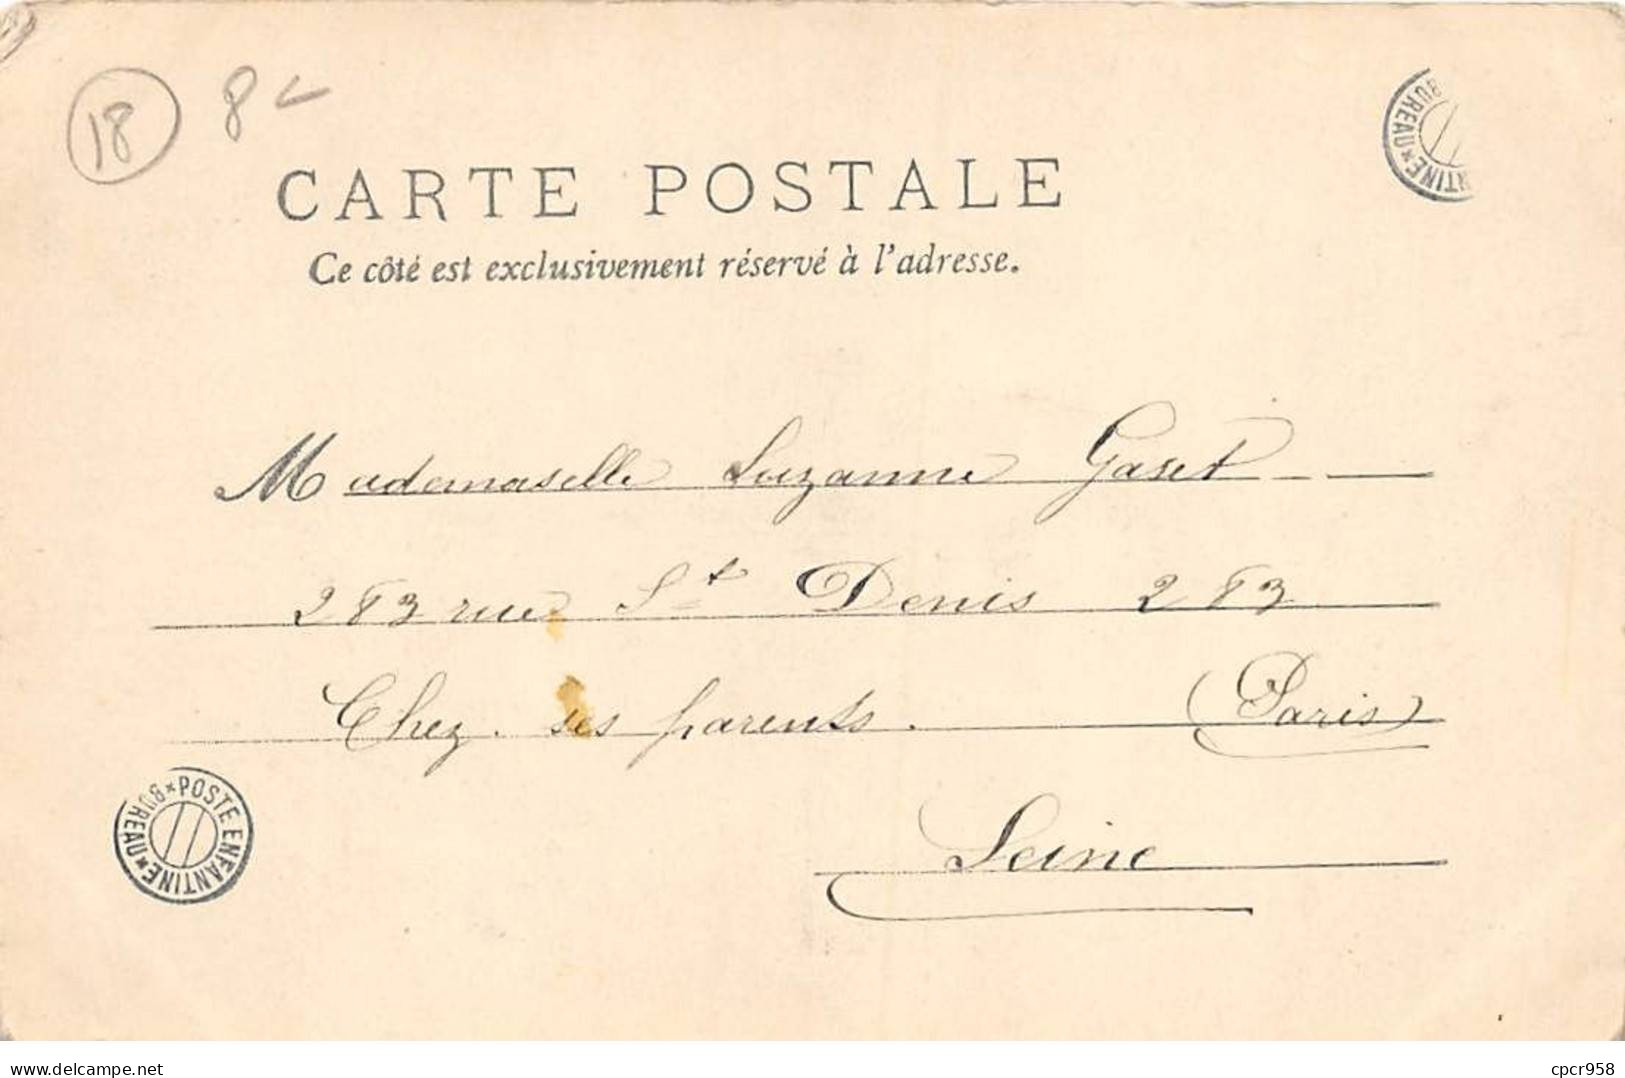 18 8
CARTE POSTALE
Ce côté est exclusivement réservé à l'adresse.
BUREAU * POSTE ENFANTINE *
BUREAU * NTINE
Mademoiselle Suzanne Gaset
283 rue St Denis 283
Chez ses parents. (Paris)
Seine
www.delcampe.net
cpcr958